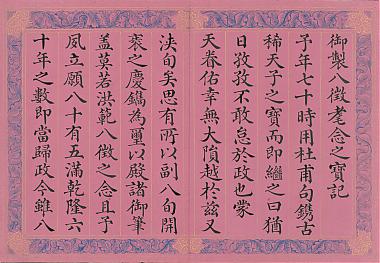 御製八徵耄念之寶記
予年七十時用杜甫句鐫古
稀天子之寶而即繼之曰猶
日孜孜不敢怠於政也蒙
天眷佑幸無大隕越於茲又
浹旬矣思有所以副八旬開
袠之慶鐫為璽以殿諸御筆
蓋莫若洪範八徵之念且予
夙立願八十有五滿乾隆六
十年之數即當歸政今雖八